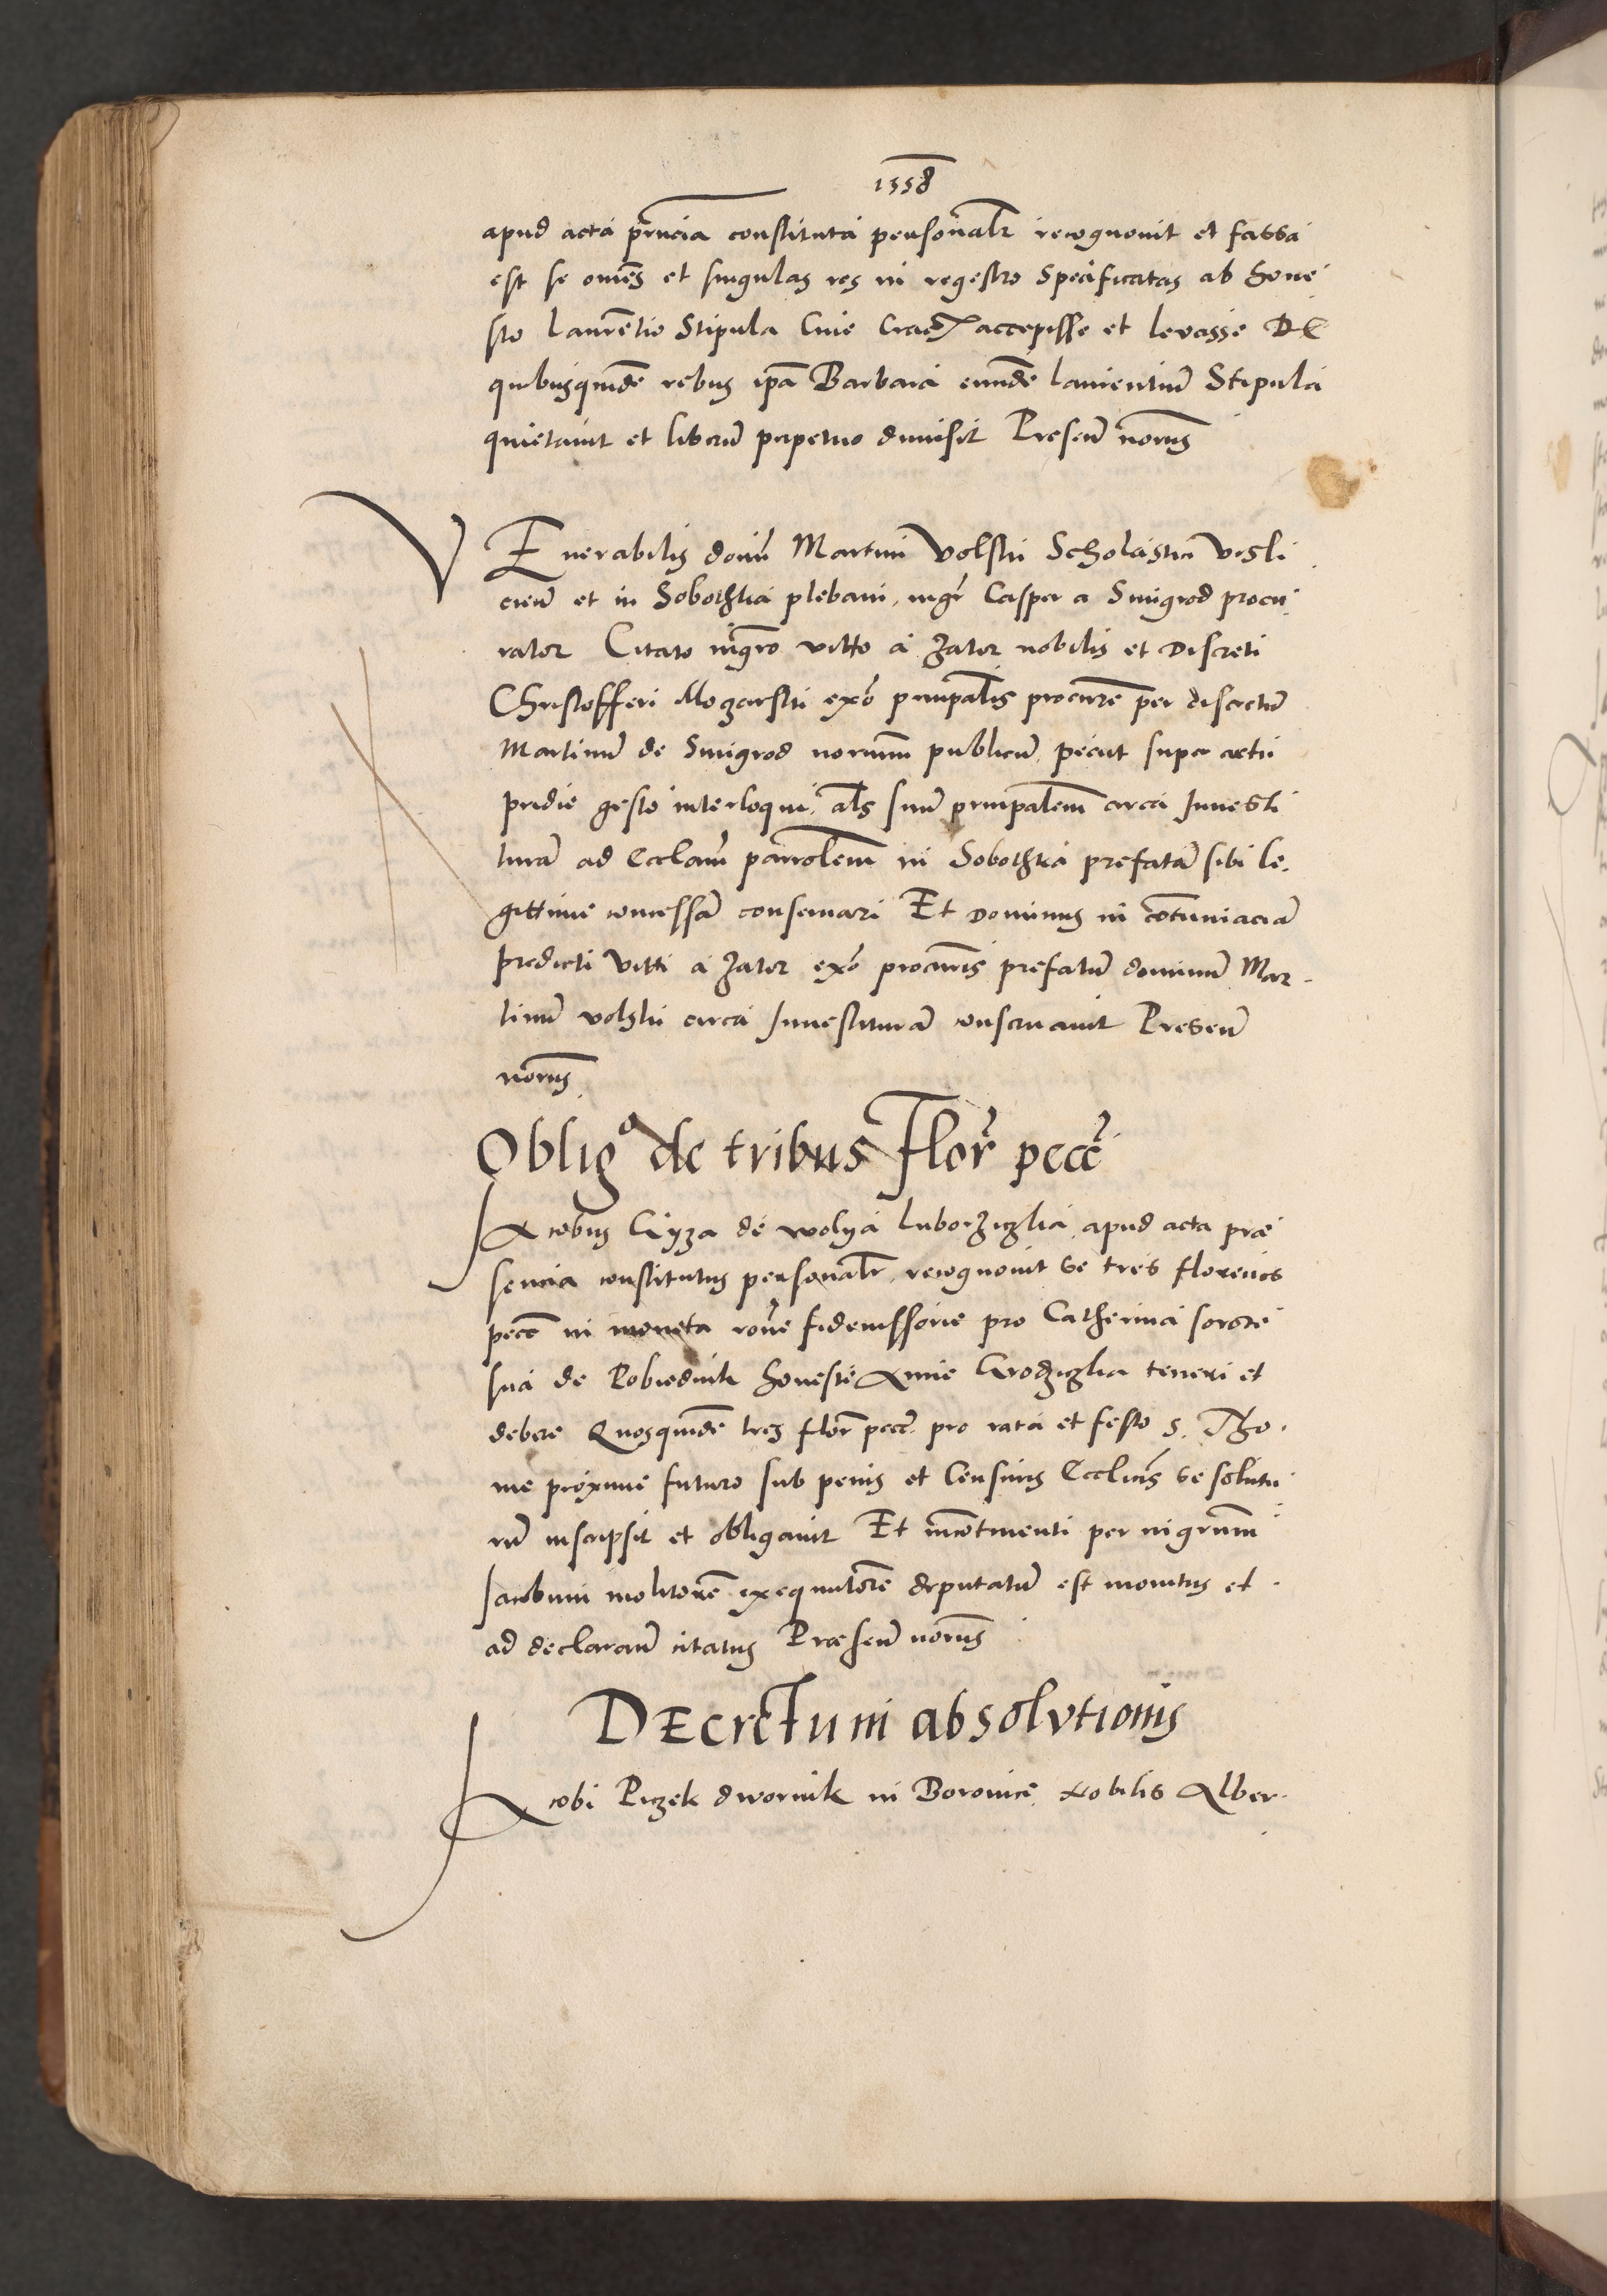 1558
apud acta pn̄cia constituta personalr recognovit et fassa
est se om̄es et singulas res in regestro specificatas ab hone
sto Laurētio Stipula Cive Crac accepisse et levasse De
quibusquidē rebus ip̄a Barbara eundē Laurentiū Stipula
quietavit et liberū perpetuo dimisit Preseñ noriis
VEnerabilis domī Martini Volski Scholastici Visli
cieñ et in Sobothka plebani, mgr Casper a Smigrod procu
rator Citato mgro Vitto a Zator nobilis et Discreti
Christofferi Mogarski exo principalis procurē per discretū
Martinū de Smigrod norium publicū, peciit super actu
pridie gesto interloqui, als suū principalem circa Investi
turā ad Ecclām parrolem in Sobothka prefatā sibi le
gittime concessā conservari Et Dominus in cōtumaciā
predicti Vitti a Zator exo procuris prefatū dominū Mar
tinū Volski circa Investiturā conservavit Preseñ
noriis
Obligo de tribus Flor pecc
Jacobus Gyza de Wolya Luborziczka, apud acta præ
sencia constitutus personalr, recognovit se tres florenos
pecc in moneta rone fideiussorie pro Catherina sorore
sua de Pobiednik honeste Anne Grodziczka teneri et
debere Quosquidē tres flor pecc pro rata et festo S. Tho
me proxime futuro sub penis et Censuris Ecclicis se solutu
rū inscripsit et obligavit Et incōtinenti per mgrum
Jacobum molitorē exequutorē deputatū est monitus et
ad declarañ citatus Præseñ noriis
DEcreTum absolvtionis
Jacobi Piczek dwornik in Boronice, Nobilis Alber